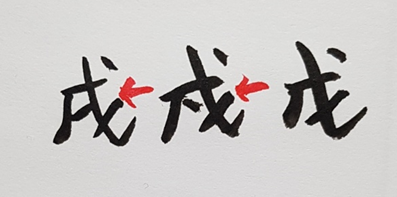 戌←戍←戊